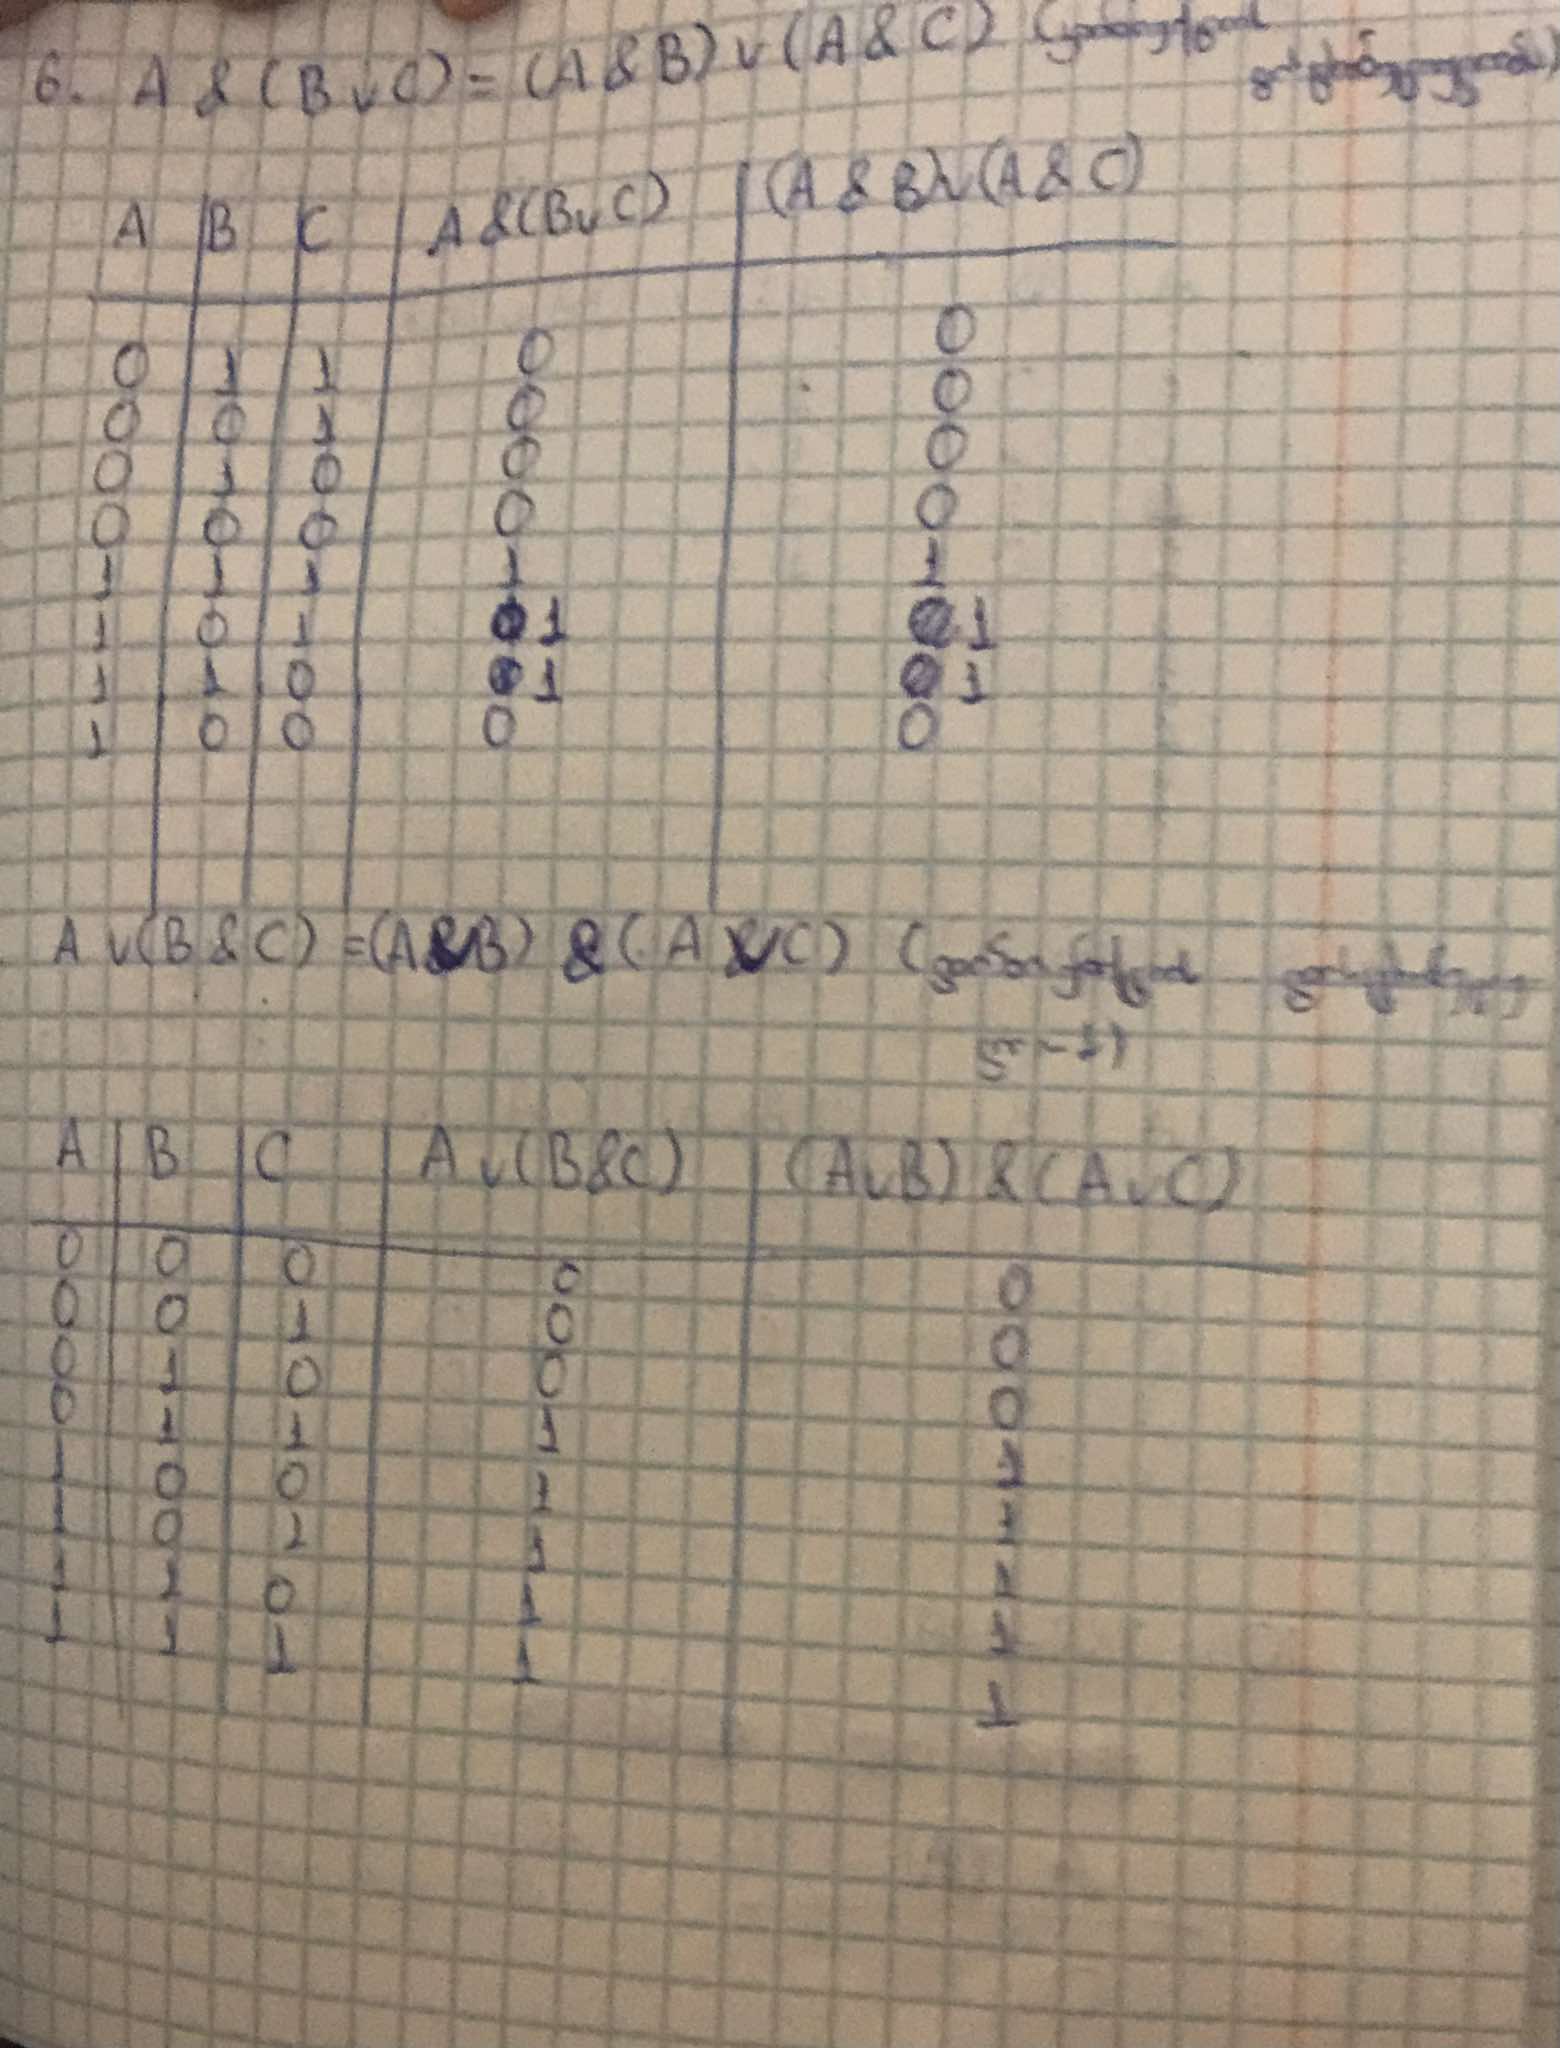 6. A & (B ∨ C) = (A & B) ∨ (A & C) (
A B C A & (B ∨ C) (A & B) ∨ (A & C)
0 1 1 0 0
0 0 1 0 0
0 1 0 0 0
0 0 0 0 0
1 1 1 1 1
1 0 1 1 1
1 1 0 1 1
1 0 0 0 0
A ∨ (B & C) = (A ∨ B) & (A ∨ C) (
A B C A ∨ (B & C) (A ∨ B) & (A ∨ C)
0 0 0 0 0
0 0 1 0 0
0 1 0 0 0
0 1 1 1 1
1 0 0 1 1
1 0 1 1 1
1 1 0 1 1
1 1 1 1 1